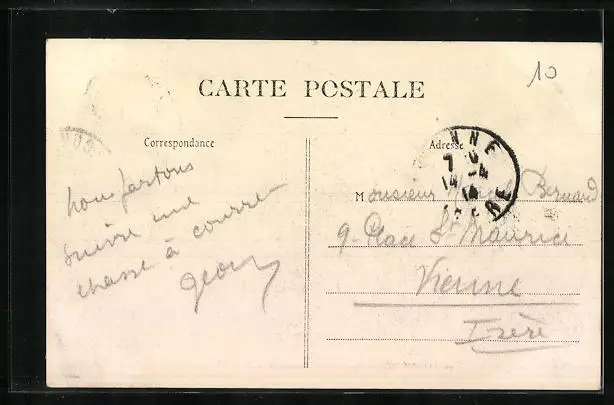 10
CARTE POSTALE
Correspondance
Adresse
nous partons
suivre une
chasse à courre
NNE
7
14 -4
14
RE
Monsieur Bernard
9 Place St Maurice
Vienne
Isère